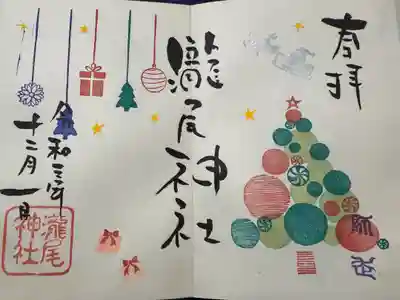 奉拝
瀧尾神社
令和三年
十二月一日
瀧尾
神社